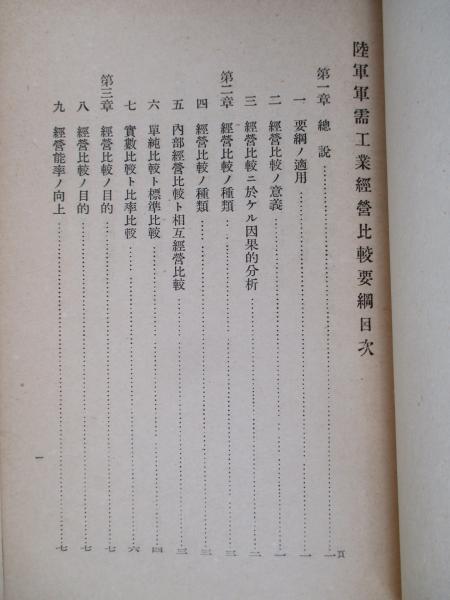 陸軍軍需工業經營比較要綱目次
頁
第一章 總說……一
一 要綱ノ適用……一
二 經營比較ノ意義……一
三 經營比較ニ於ケル因果的分析……二
第二章 經營比較ノ種類……三
四 經營比較ノ種類……三
五 內部經營比較ト相互經營比較……三
六 單純比較ト標準比較……四
七 實數比較ト比率比較……六
第三章 經營比較ノ目的……七
八 經營比較ノ目的……七
九 經營能率ノ向上……七
一